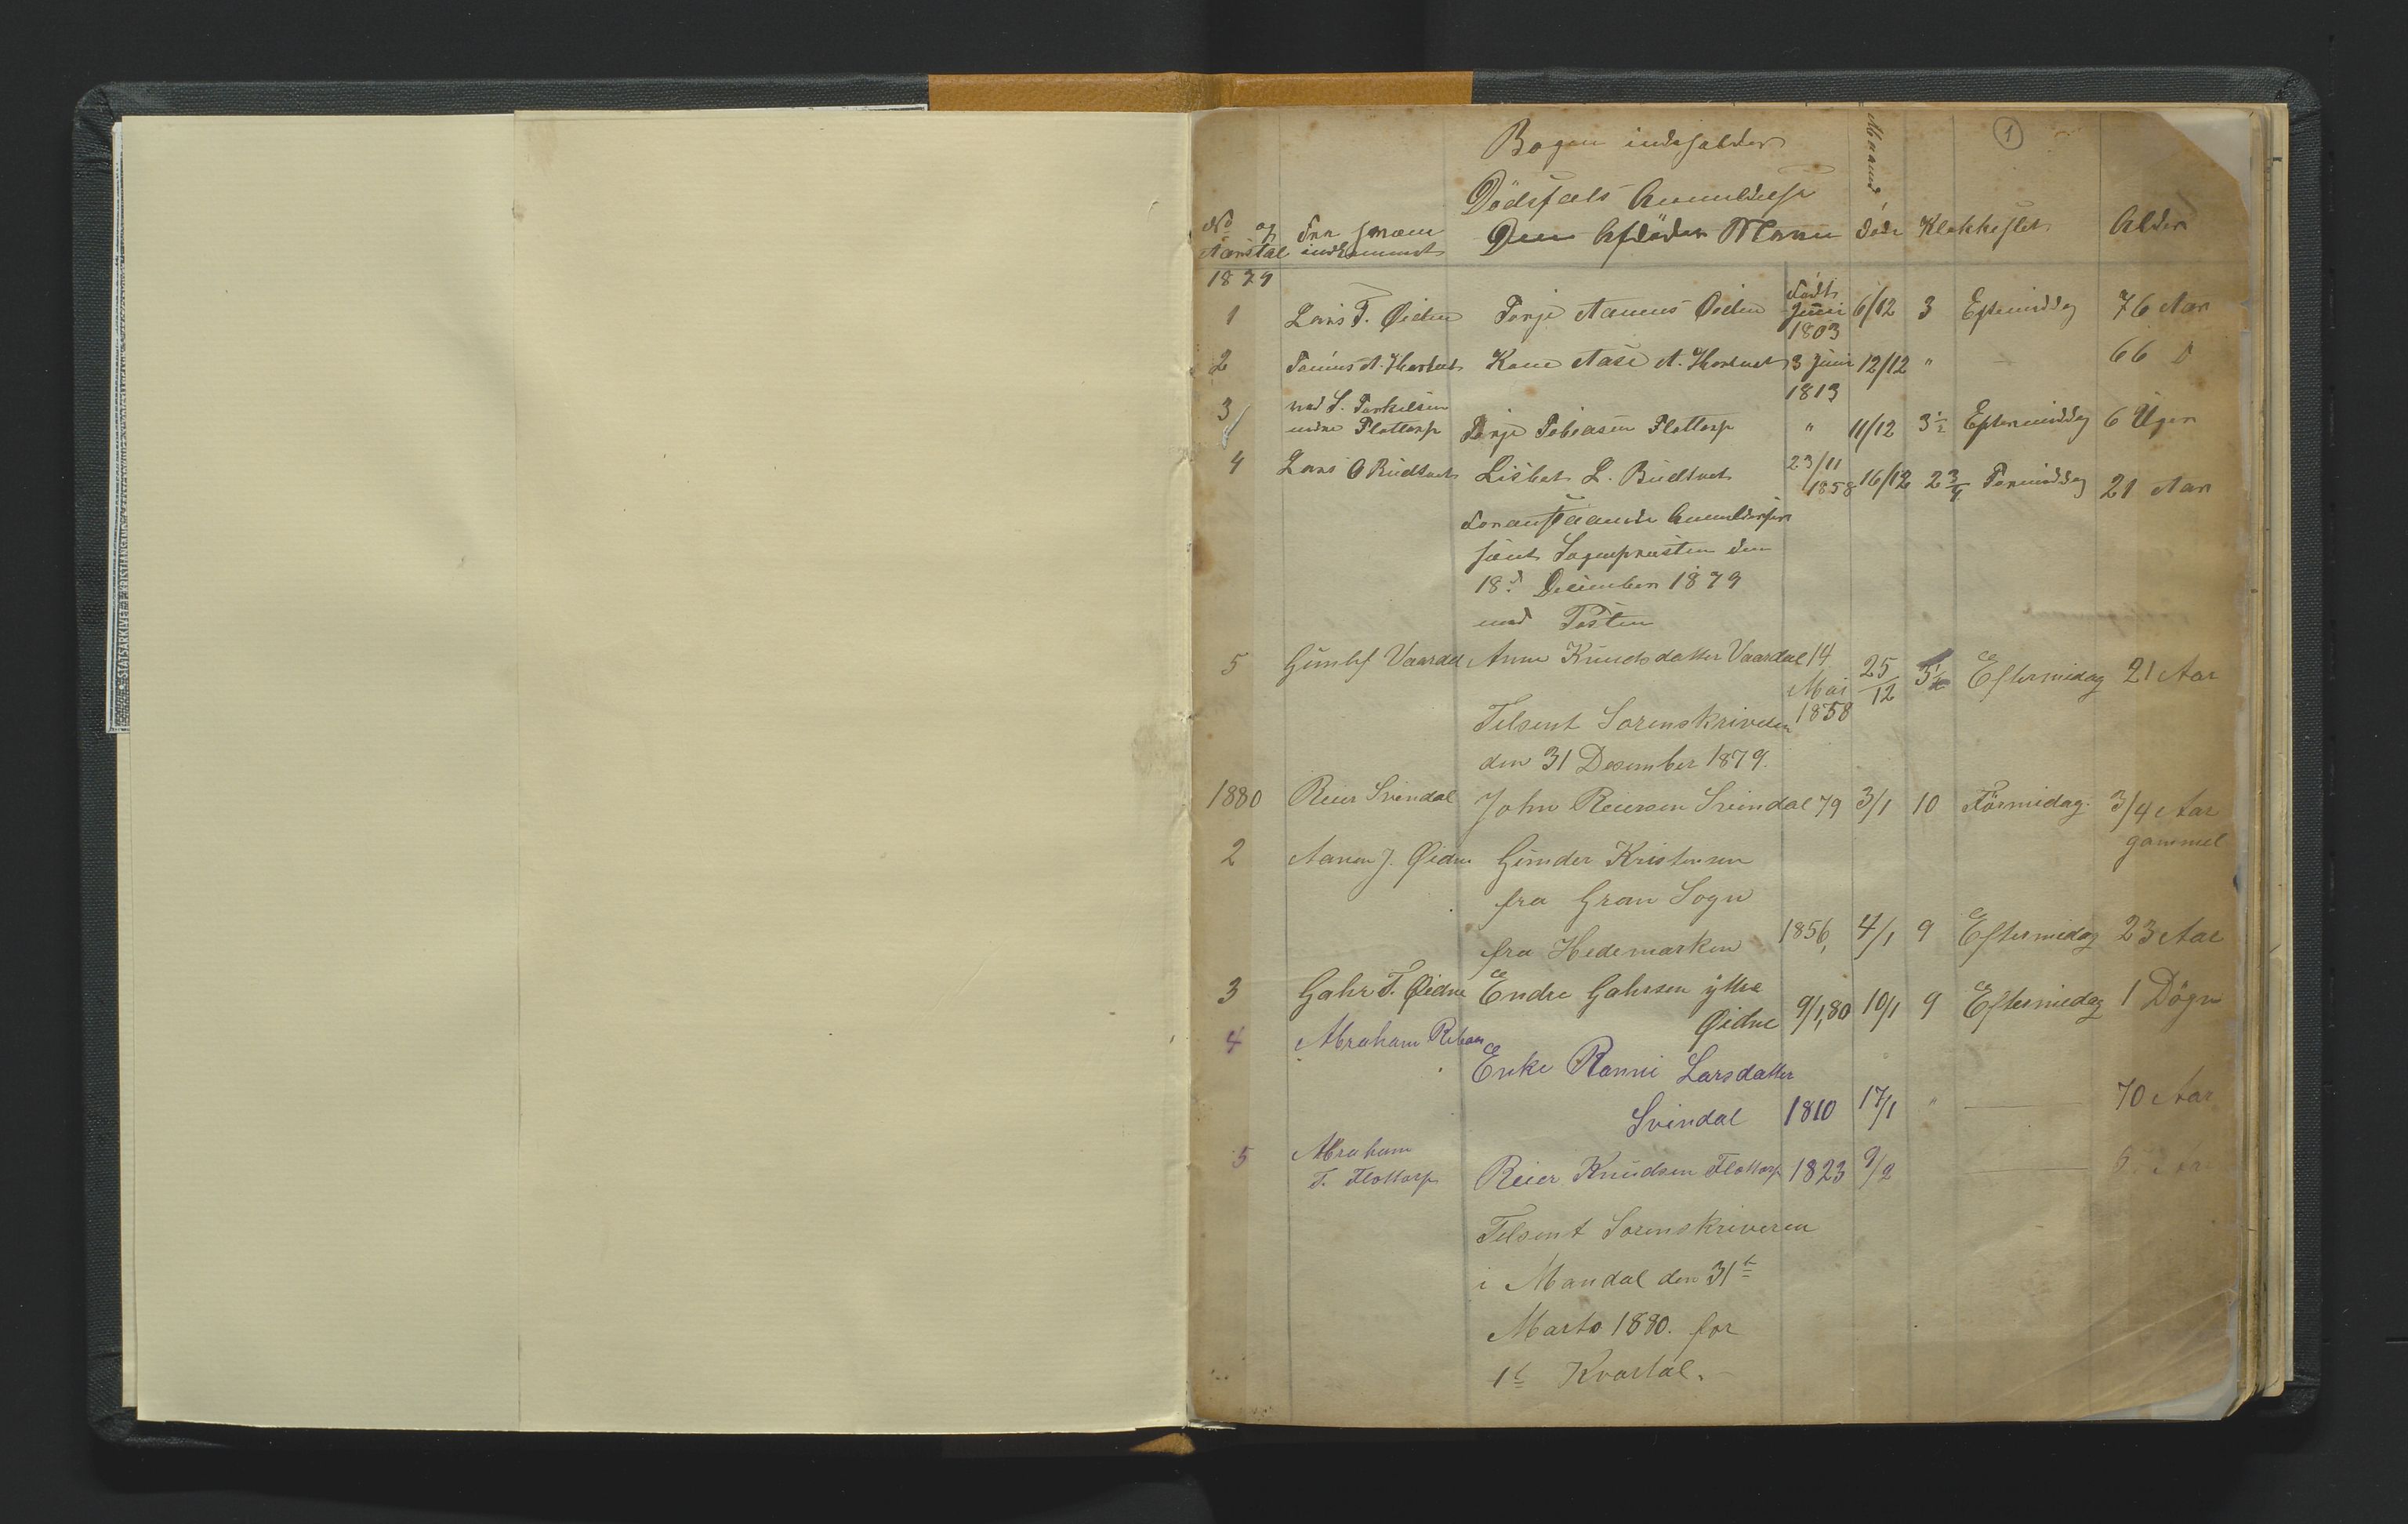 STATSARKIVET KRISTIANSAND
1
Bogen indeholder
Dödsfals Anmeldelse
Maaned
No og Aarstal
fra hvem indkommet
Den Afdödes Navn
döde
Klokkeslet
Alder
1879
1 Lars T. Øidne Terje Aanens Øidne Födt Juni 1803 6/12 3 Eftermiddag 76 Aar
2 Tönnes A. Kone Aase A. 3 Juni 1813 12/12 " 66 D
3 ved S. Torkelsen Flottorp Terje Tobiasen Flottorp " 11/12 3½ Eftermiddag 6 Uger
4 Lars Lisbet L. 23/11 1858 16/12 2¾ Formiddag 21 Aar
Foranstaaende Anmeldelser
sent Sogneprresten den
18d Desember 1879
med Posten
5 Gunluf Vaardal Anne Knudsdatter Vaardal 14 Mai 1858 25/12 Eftermidag 21 Aar
Tilsent Sorenskriveren
den 31 Desember 1879.
1880 Reier Svindal John Reiersen Svindal 79 3/1 10 Formidag. 3/4 Aar gammel
2 Aanen J. Øidne Gunder Kristensen
fra Gran Sogn
fra Hedemarken 1856, 4/1 9 Eftermidag 23 Aar
3 Gahr T. Øidne Endre Gahrsen ytre
Øidne 9/1,80 10/1 9 Eftermidag 1 Dögn
4 Abraham Enke Ranni Larsdatter
Svindal 1810 17/1 " 70 Aar
5 Abraham
T. Flottorp Reier Knudsen Flottorp 1823 9/2
Tilsent Sorenskriveren
i Mandal den 31te
Marts 1880. for
1te Kvartal.